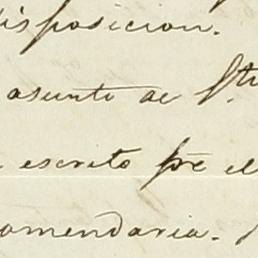 disposicion.
asunto de Sto.
escrito pre el
comendaria.